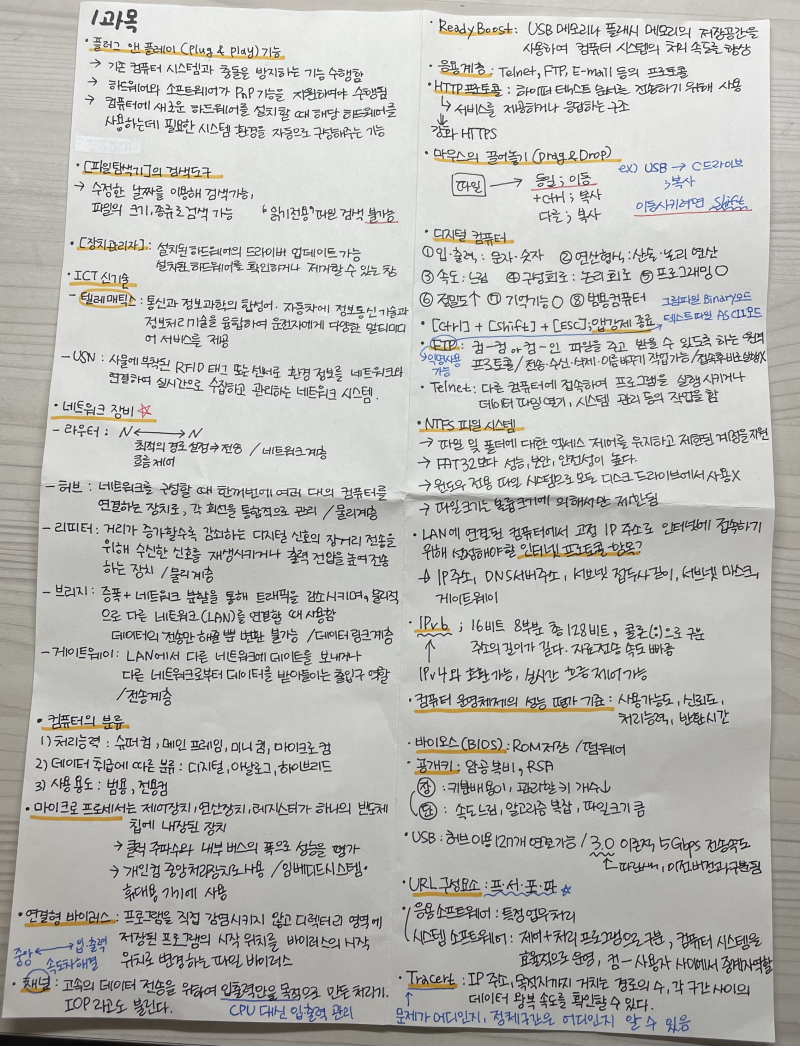 1과목
• 플러그 앤 플레이 (Plug & Play) 기능
→ 기존 컴퓨터 시스템과 충돌을 방지하는 기능 수행함
→ 하드웨어와 소프트웨어가 PnP 기능을 지원하여야 수행됨
→ 컴퓨터에 새로운 하드웨어를 설치할 때 해당 하드웨어를
사용하는데 필요한 시스템 환경을 자동으로 구성해주는 기능
• [파일탐색기]의 검색도구
→ 수정한 날짜를 이용해 검색가능,
파일의 크기, 종류로 검색 가능 "읽기전용" 파일 검색 불가능
• [장치관리자] : 설치된 하드웨어의 드라이버 업데이트 가능
설치된 하드웨어를 확인하거나 제거할 수 있는 창
• ICT 신기술
– 텔레매틱스 : 통신과 정보과학의 합성어. 자동차에 정보통신기술과
정보처리기술을 융합하여 운전자에게 다양한 멀티미디
어 서비스를 제공
– USN : 사물에 부착된 RFID 태그 또는 센서로 환경 정보를 네트워크와
연결하여 실시간으로 수집하고 관리하는 네트워크 시스템.
• 네트워크 장비 ☆
– 라우터 : N ↔ N
최적의 경로 설정 → 전송 / 네트워크계층
흐름 제어
– 허브 : 네트워크를 구성할 때 한꺼번에 여러 대의 컴퓨터를
연결하는 장치로, 각 회선을 통합적으로 관리 / 물리계층
– 리피터 : 거리가 증가할수록 감쇠하는 디지털 신호의 장거리 전송을
위해 수신한 신호를 재생시키거나 출력 전압을 높여 전송
하는 장치 / 물리계층
– 브리지 : 증폭 + 네트워크 분할을 통해 트래픽을 감소시키며, 물리적
으로 다른 네트워크(LAN)를 연결할 때 사용함
데이터의 전송만 해줄 뿐 변환 불가능 / 데이터 링크계층
– 게이트웨이 : LAN에서 다른 네트워크에 데이트를 보내거나
다른 네트워크로부터 데이터를 받아들이는 출입구 역할
/ 전송계층
• 컴퓨터의 분류
1) 처리능력 : 슈퍼컴, 메인 프레임, 미니컴, 마이크로컴
2) 데이터 취급에 따른 분류 : 디지털, 아날로그, 하이브리드
3) 사용용도 : 범용, 전용컴
• 마이크로 프로세서는 제어장치, 연산장치, 레지스터가 하나의 반도체
칩에 내장된 장치
→ 클럭 주파수와 내부 버스의 폭으로 성능을 평가
→ 개인컴 중앙처리장치로 사용 / 임베디드시스템·
휴대용 기기에 사용
• 연결형 바이러스 : 프로그램을 직접 감염시키지 않고 디렉터리 영역에
저장된 프로그램의 시작 위치를 바이러스의 시작
위치로 변경하는 파일 바이러스
중앙 ↔ 입·출력
속도차 해결
• 채널 : 고속의 데이터 전송을 위하여 입출력만을 목적으로 만든 처리기.
IOP라고도 불린다. CPU 대신 입출력 관리
• ReadyBoost : USB 메모리나 플래시 메모리의 저장공간을
사용하여 컴퓨터 시스템의 처리 속도를 향상
• 응용계층 : Telnet, FTP, E-mail 등의 프로토콜
• HTTP 프로토콜 : 하이퍼 텍스트 문서를 전송하기 위해 사용
↳ 서비스를 제공하거나 응답하는 구조
강화 HTTPS
• 마우스의 끌어놓기 (Drag & Drop)
파일 → 동일 ; 이동
+ctrl ; 복사
다름 ; 복사
ex) USB → C드라이브
; 복사
이동시키려면 Shift
• 디지털 컴퓨터
① 입·출력 : 문자·숫자 ② 연산형식 : 산술·논리 연산
③ 속도 : 느림 ④ 구성회로 : 논리회로 ⑤ 프로그래밍 O
⑥ 정밀도↑ ⑦ 기억기능 O ⑧ 범용컴퓨터
• [Ctrl] + [Shift] + [ESC] ; 앱강제 종료
그림파일 Binary모드
텍스트파일 ASCII모드
• FTP : 컴–컴 or 컴–인 파일을 주고 받을 수 있도록 하는 원격
프로토콜 / 전송·수신·삭제·이름 바꾸기 작업 가능 / 접속 후 바로 실행X
익명사용
가능
• Telnet : 다른 컴퓨터에 접속하여 프로그램을 실행시키거나
데이터 파일 열기, 시스템 관리 등의 작업을 함
• NTFS 파일 시스템
→ 파일 및 폴더에 대한 엑세스 제어를 유지하고 제한된 계정을 지원
→ FAT32보다 성능, 보안, 안전성이 높다.
→ 윈도우 전용 파일 시스템으로 모든 디스크 드라이브에서 사용X
→ 파일크기는 볼륨크기에 의해서만 제한됨
• LAN에 연결된 컴퓨터에서 고정 IP 주소로 인터넷에 접속하기
위해 설정해야할 인터넷 프로토콜 항목?
↳ IP주소, DNS서버주소, 서브넷 접두사길이, 서브넷 마스크,
게이트웨이
• IPv6 ; 16비트 8부분 총 128비트, 콜론(:)으로 구분
주소의 길이가 길다. 자료전송 속도 빠름
↑
IPv4와 호환 가능, 실시간 흐름 제어 가능
• 컴퓨터 운영체제의 성능 평가 기준 : 사용가능도, 신뢰도,
처리능력, 반환시간
• 바이오스(BIOS) : ROM 저장 / 펌웨어
• 공개키 : 암공복비, RSA
장 : 키 분배 용이, 관리할 키 개수↓
단 : 속도느림, 알고리즘 복잡, 파일크기 큼
• USB : 허브 이용 127개 연결가능 / 3.0 이론적 5Gbps 전송속도
↖ 파란색, 이전버전과 구분됨
• URL 구성요소 : 프·서·포·파 ☆
응용소프트웨어 : 특정업무처리
시스템 소프트웨어 : 제어 + 처리 프로그램으로 구분, 컴퓨터 시스템을
효율적으로 운영, 컴–사용자 사이에서 중개자역할
• Tracert : IP 주소, 목적지까지 거치는 경로의 수, 각 구간 사이의
데이터 왕복 속도를 확인할 수 있다.
문제가 어디인지, 정체구간은 어디인지 알 수 있음